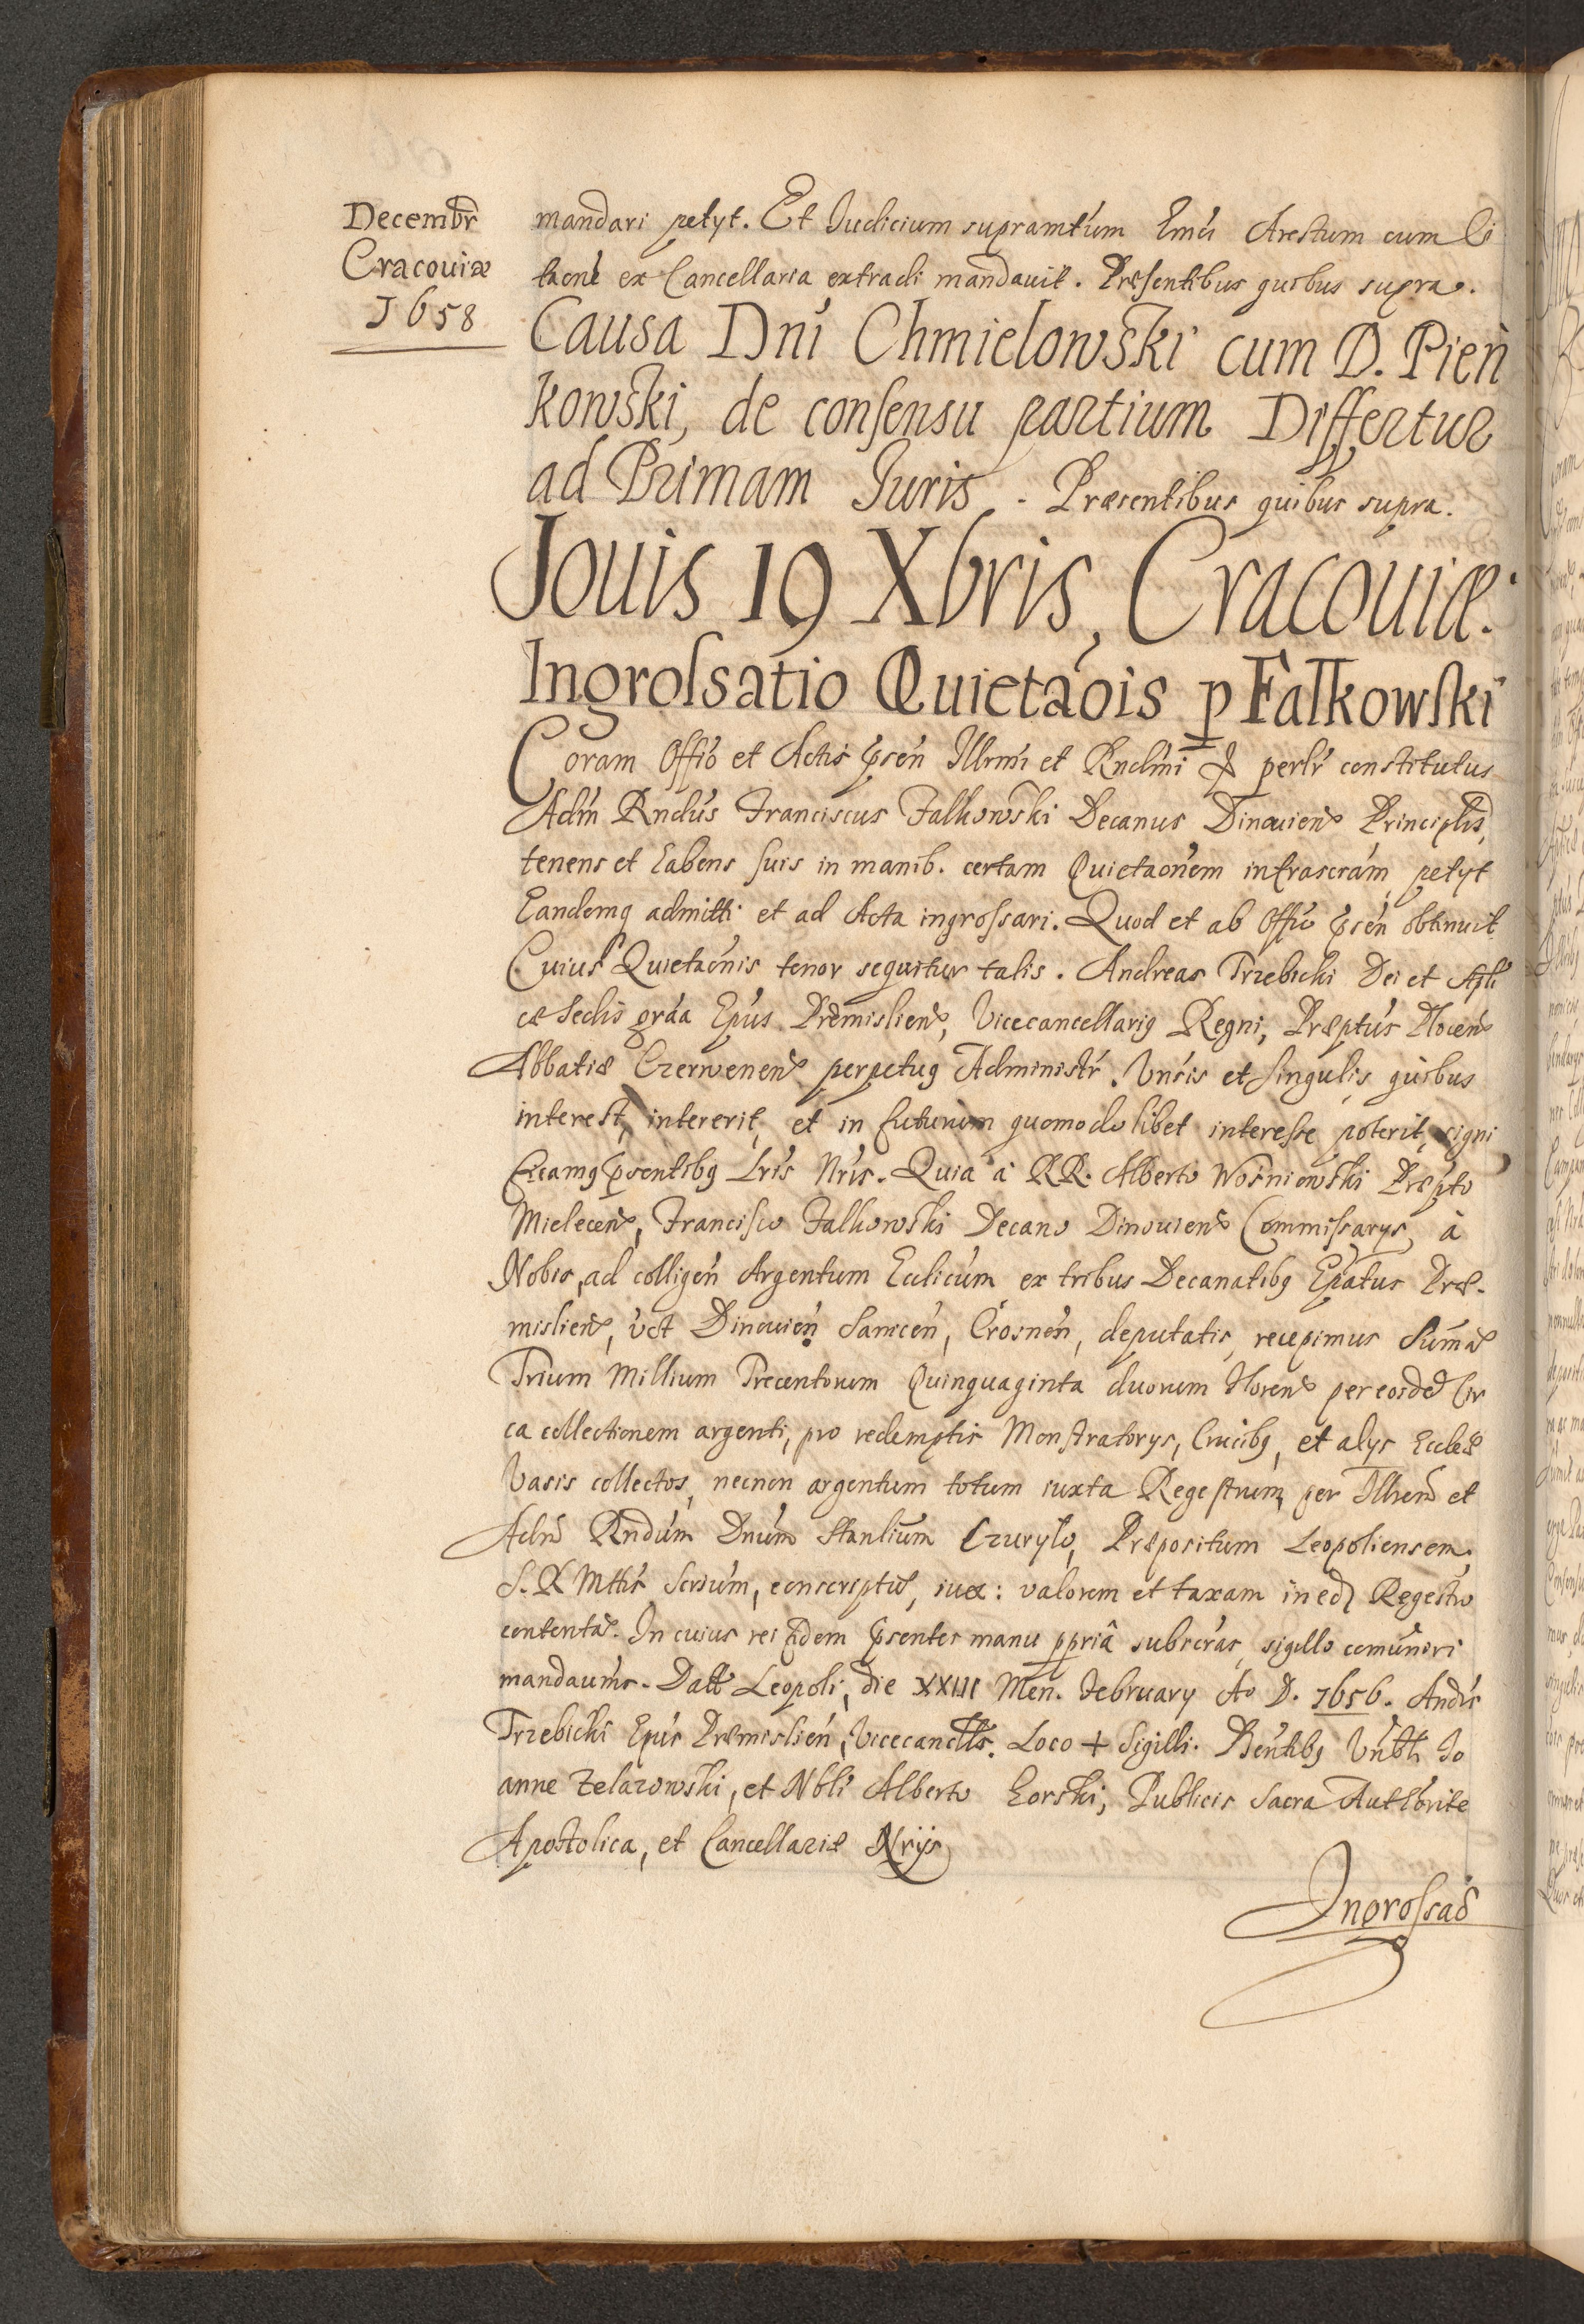 Decembr
Cracouiæ
1658
mandari petyt. Et Iudicium supramtum Arestum cum Ci
taone ex Cancellaria extradi mandauit. Præsentibus quibus supra.
Causa Dni Chmielowski cum D. Pień
kowski, de consensu partium Differtur
ad Primam Iuris. Præsentibus quibus supra.
Jouis 19 Xbris, Cracouiæ.
Ingrossatio Quietaōis p Falkowski
Coram Offio et Actis psen Illrmi et Rndmi perlr constitutus
Adm Rndus Franciscus Falkowski Decanus Dinouien Principlis,
tenens et habens suis in manib. certam Quietaonem infrascram, petyt
Eandemq admitti et ad Acta ingrossari. Quod et ab Offio psen obtinuit
Cuius Quietaonis tenor sequitur talis. Andreas Trzebicki Dei et Apli
cæ Sedis gräa Epus Præmislien, Vicecancellariq Regni, Præptus Plocen
Abbatiæ Czerwenen perpetuq Administr. Vnsis et singulis, quibus
interest, intererit, et in futurum quomodolibet interesse poterit, signi
ficamq psentibq Lris Nris. Quia a RR. Alberto Wosniowski Præpto
Mielecen, Francisco Falkowski Decano Dinouien Commissarys, à
Nobis, ad colligen Argentum Ecclicum ex tribus Decanatibq Epatus Præ-
mislien, vct Dinouien Sanocen, Crosnen, deputatis, recepimus Sumã
Trium Millium Trecentorum Quinquaginta duorum floren per eosdẽ Cir
ca collectionem argenti, pro redemptis Monstratorys, Crucibq, et alys Eccleæ
Vasis collectos, necnon argentum totum iuxta Regestrum, per Illrem et
Adm Rndum Dnum Stanlium Czuryło, Præpositum Leopoliensem,
S. R Mttis Scrium, conscriptũ, iux: valorem et taxam in eod Regestro
contentã. In cuius rei fidem psentes manu ppriâ subscras, sigillo comuniri
mandauims. Datt Leopoli, die XXIII Men. February Ao D. 1656. Andrs
Trzebicki Epus Præmislien, Vicecanclls. Loco + Sigilli. Pñtibq Vnbli Io
anne Zelazowski, et Nbli Alberto Gorski, Publicis Sacra Authorite
Apostolica, et Cancellariæ Nrijs
Ingrossad